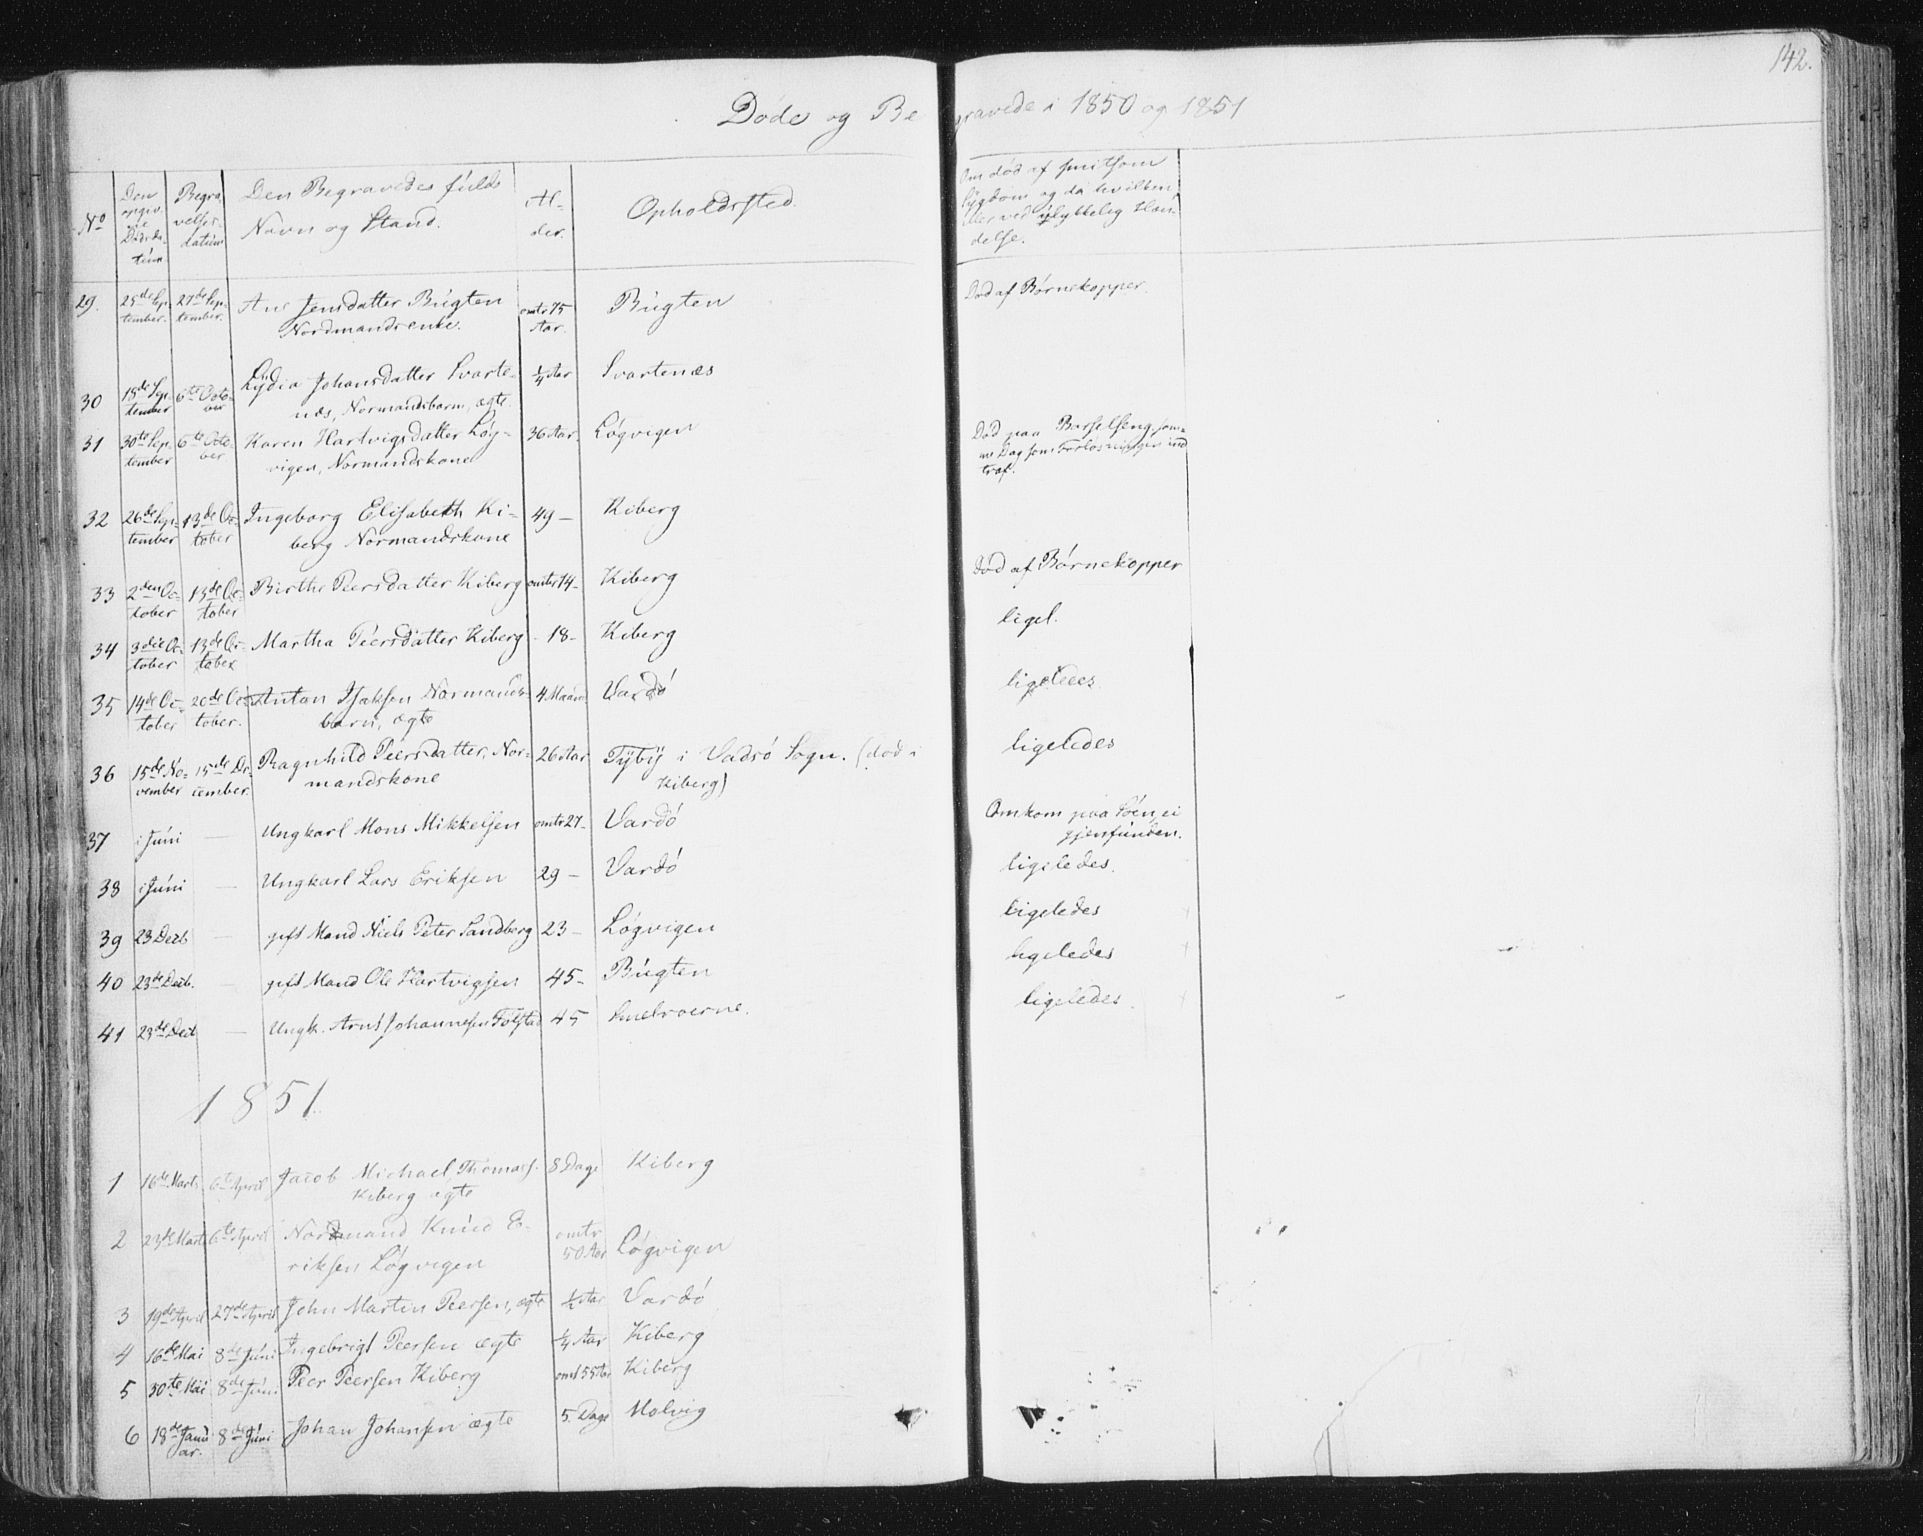 142.
Døde og Begravede i 1850 og 1851
No
Den opgivne Dødsdatum
Begravelsesdatum
Den Begravedes fulde Navn og Stand.
Alder.
Opholdssted.
Om død af smitsom Sygdom og da hvilken, eller ved ulykkelig Hændelse.
29. 25de September. 27de September. Ane Jensdatter Bugten Nordmandsenke. omtr 75 Aar. Bugten Død af Børnekopper.
30 15de September 6te October Lydia Johansdatter Svartenæs, Normandsbarn, ægte. ¼ Aar Svartenæs
31 30te September 6te October Karen Hartvigsdatter Løgvigen, Normandskone 36 Aar. Løgvigen Død paa Barselseng samme Dag som Forløsningen indtraf.
32 26de September 13de October Ingeborg Elisabeth Kiberg Normandskone 49 – Kiberg
33 2den October 13de October Birthe Peersdatter Kiberg omtr 14 – Kiberg død af Børnekopper
34 3die October 13de October Martha Peersdatter Kiberg - 18 - Kiberg ligel.
35 14de October 20de October. Anton Isaksen Normandsbarn, ægte 4 Maan Vardø ligeledes
36 15de November 15de December. Ragnhild Peersdatter, Normandskone 26 Aar Tyby i Vadsø Sogn. (død i Kiberg) ligeledes
37 i Juni — Ungkarl Mons Mikkelsen omtr 27 - Vardø Omkom paa Søen, ei gjenfunden.
38 i Juni — Ungkarl Lars Eriksen 29 – Vardø ligeledes.
39 23 Decb — gift Mand Niels Peter Sandberg 23 – Løgvigen ligeledes
40 23de Decb. — gift Mand Ole Hartvigsen 45 - Bugten ligeledes
41 23de Decb — Ungk. Arnt Johannesen Følstad 45 Smelrorerne. ligeledes.
1851.
1 16de Marts 6te April Jacob Michael Thomass. Kiberg ægte 8 Dage Kiberg
2 23de Marts 6te April Nordmand Knud Eriksen Løgvigen omtr 50 Aar Løgvigen
3 19de April 27de April John Martin Peersen, ægte ½ Aar Vardø
4 16de Mai 8de Juni Ingebrigt Peersen ægte ¼ Aar Kiberg
5 30te Mai 8de Juni Peer Peersen Kiberg omt 55 Aar Kiberg
6 18de Januar. 8de Juni Johan Johansen ægte 5 Dage Molvig